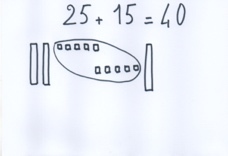 25 + 15 = 40